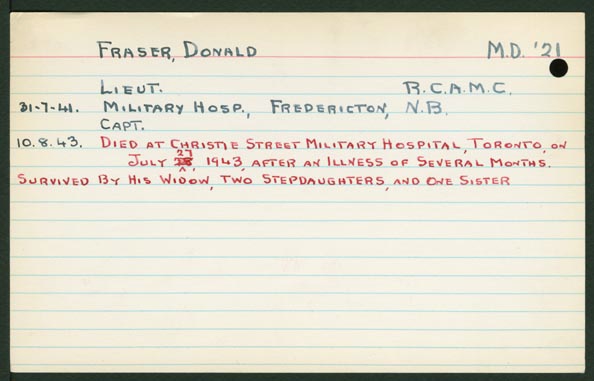 FRASER, DONALD M.D. '21
LIEUT. R.C.A.M.C.
31-7-41. MILITARY HOSP., FREDERICTON, N.B.
CAPT.
10.8.43. DIED AT CHRISTIE STREET MILITARY HOSPITAL, TORONTO, ON
JULY 27, 1943, AFTER AN ILLNESS OF SEVERAL MONTHS.
SURVIVED BY HIS WIDOW, TWO STEPDAUGHTERS, AND ONE SISTER